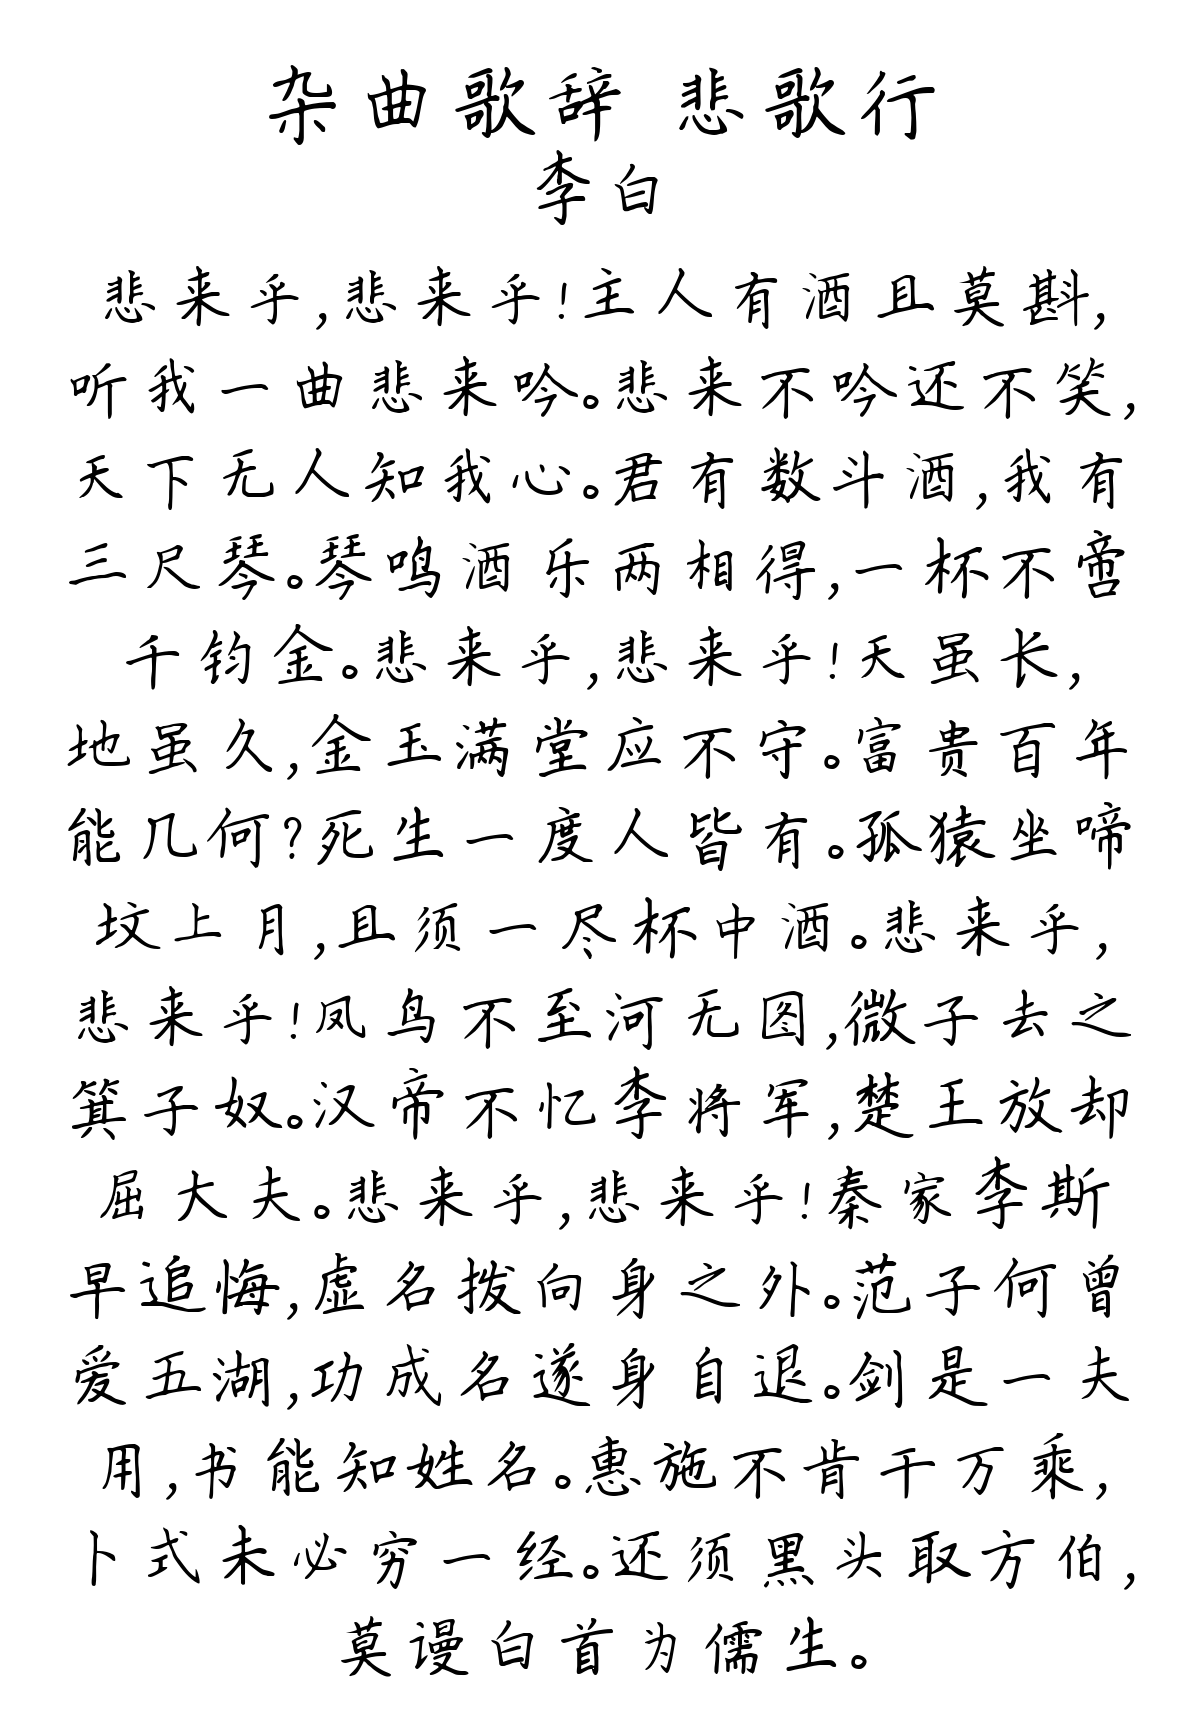 杂曲歌辞 悲歌行
李白
悲来乎,悲来乎!主人有酒且莫斟,
听我一曲悲来吟。悲来不吟还不笑,
天下无人知我心。君有数斗酒,我有
三尺琴。琴鸣酒乐两相得,一杯不啻
千钧金。悲来乎,悲来乎!天虽长,
地虽久,金玉满堂应不守。富贵百年
能几何?死生一度人皆有。孤猿坐啼
坟上月,且须一尽杯中酒。悲来乎,
悲来乎!凤鸟不至河无图,微子去之
箕子奴。汉帝不忆李将军,楚王放却
屈大夫。悲来乎,悲来乎!秦家李斯
早追悔,虚名拨向身之外。范子何曾
爱五湖,功成名遂身自退。剑是一夫
用,书能知姓名。惠施不肯干万乘,
卜式未必穷一经。还须黑头取方伯,
莫谩白首为儒生。